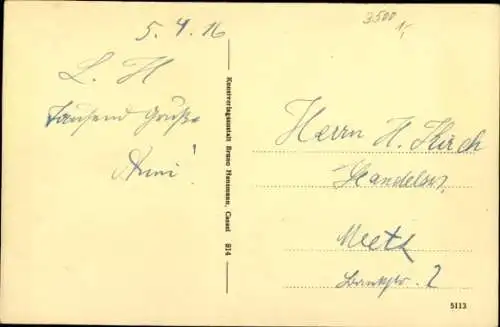 5.4.16
3500
1,-
L. H
Tausend Grüße
Anni!
Kunstverlagsanstalt Bruno Hansmann, Cassel 814
Herrn H. Kirch
Handelsv.
Metz
Bankstr. 2
5113